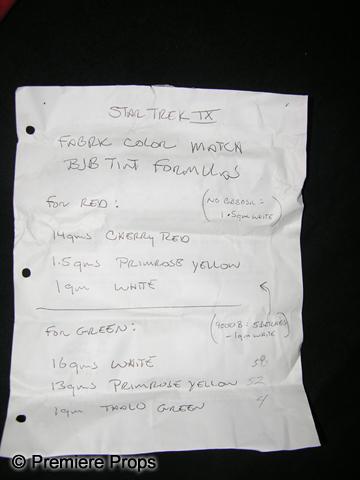 STAR TREK IX
FABRIC COLOR MATCH
BJB TINT FORMULAS
FOR RED:
1.5gm WHITE)
14gms CHERRY RED
1.5gms PRIMROSE YELLOW
1gm WHITE
FOR GREEN:
-1gm WHITE)
16gms WHITE
13gms PRIMROSE YELLOW 52
1gm THALO GREEN 4
© Premiere Props